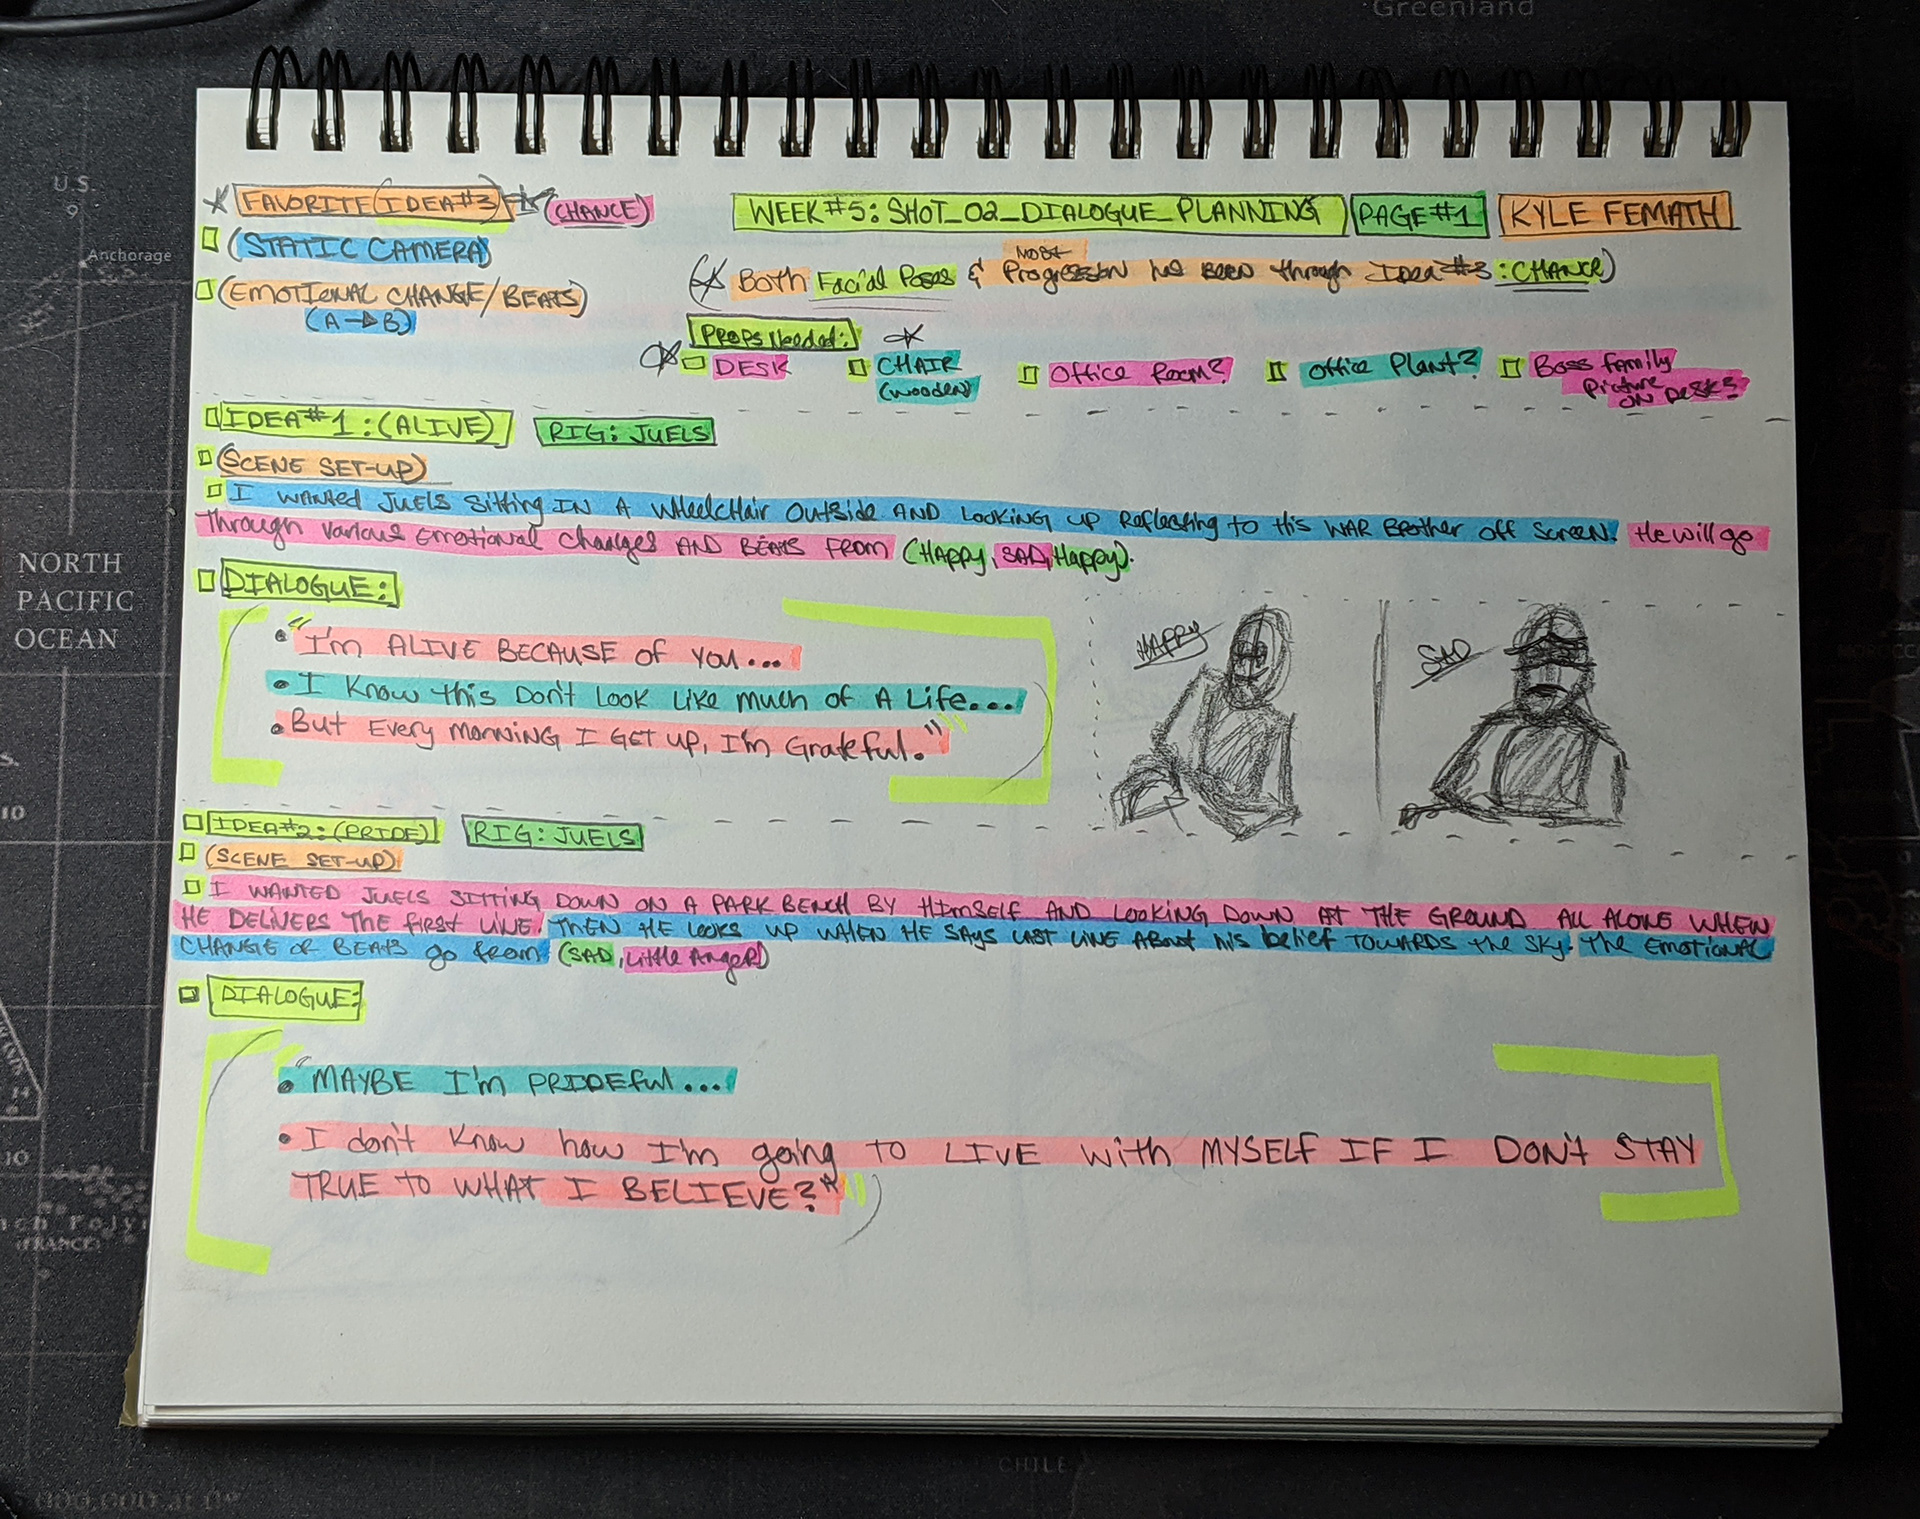 FAVORITE (IDEA #3) (CHANCE)
WEEK #5: SHOT_02_DIALOGUE_PLANNING
PAGE #1
KYLE FEMATH
(STATIC CAMERA)
(EMOTIONAL CHANGE/BEATS)
(A → B)
(Both Facial Poses & most Progression has been through Idea #3: CHANCE)
Props Needed:
DESK
CHAIR
(wooden)
Office Room?
Office Plant?
Boss family
Picture
ON DESK?
IDEA #1: (ALIVE)
RIG: JUELS
(SCENE SET-UP)
I WANTED JUELS Sitting IN A WheelcHair Outside AND LOOKING up Reflecting to His WAR Brother off Screen. He will go
through various Emotional changes AND BEATS FROM (HAPPY, SAD, HAppy).
DIALOGUE:
"I'm ALIVE BECAUSE of YOU...
I Know this Don't Look Like much of A Life...
But Every morning I GET UP, I'm Grateful."
HAPPY
SAD
IDEA #2: (PRIDE)
RIG: JUELS
(SCENE SET-UP)
I WANTED JUELS SITTING DOWN ON A PARK BENCH BY HIMSELF AND LOOKING DOWN AT THE GROUND ALL ALONE WHEN
HE DELIVERS THE first LINE. THEN HE LOOKS UP WHEN HE SAYS LAST LINE ABout his belief TOWARDS the SKY. THE EMOTIONAL
CHANGE OF BEATS go from (SAD, Little Anger)
DIALOGUE:
"MAYBE I'm PRIDEful...
I don't know how I'm going TO LIVE with MYSELF IF I DON't STAY
TRUE TO WHAT I BELIEVE?"
Greenland
U.S.
9
Anchorage
NORTH
PACIFIC
OCEAN
10
10
(FRANCE)
CHILE